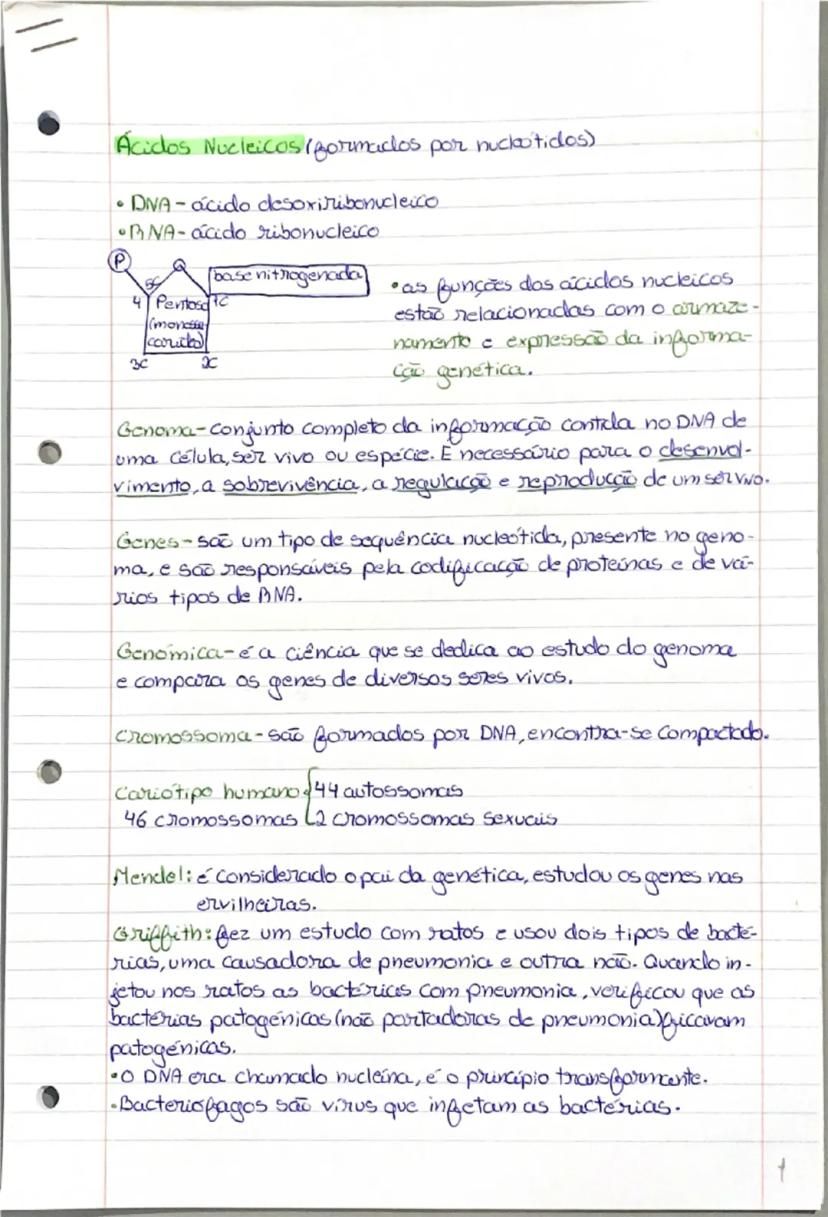 Ácidos Nucleicos (formados por nucleótidos)
• DNA - ácido desoxiribonucleico
• RNA - ácido ribonucleico
P
O
5C
base nitrogenada
4
Pentose
1C
(monossa
carído)
3C
2C
• as funções dos ácidos nucleicos
estão relacionadas com o armaze-
namento e expressão da informa-
ção genética.
Genoma - conjunto completo da informação contida no DNA de
uma célula, ser vivo ou espécie. É necessário para o desenvol-
vimento, a sobrevivência, a regulação e reprodução de um ser vivo.
Genes - são um tipo de sequência nucleótida, presente no geno-
ma, e são responsáveis pela codificação de proteínas e de vá-
rios tipos de RNA.
Genómica - é a ciência que se dedica ao estudo do genoma
e compara os genes de diversos seres vivos.
Cromossoma - são formados por DNA, encontra-se compactado.
Cariótipo humano { 44 autossomas
46 cromossomas 2 cromossomas sexuais
Mendel: é considerado o pai da genética, estudou os genes nas
ervilheiras.
Griffith: fez um estudo com ratos e usou dois tipos de bacté-
rias, uma causadora de pneumonia e outra não. Quando in-
jetou nos ratos as bactérias com pneumonia, verificou que as
bactérias patogénicas (não portadoras de pneumonia) ficavam
patogénicas.
• O DNA era chamado nucleína, é o princípio transformante.
• Bacteriófagos são vírus que infetam as bactérias.
1